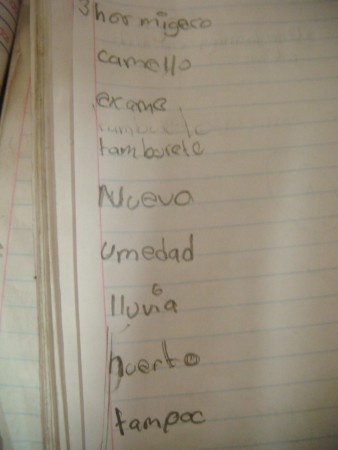 3 hormigero
camello
exame
tamburete
Nuevo
umedad
lluvia
huerto
tampoc